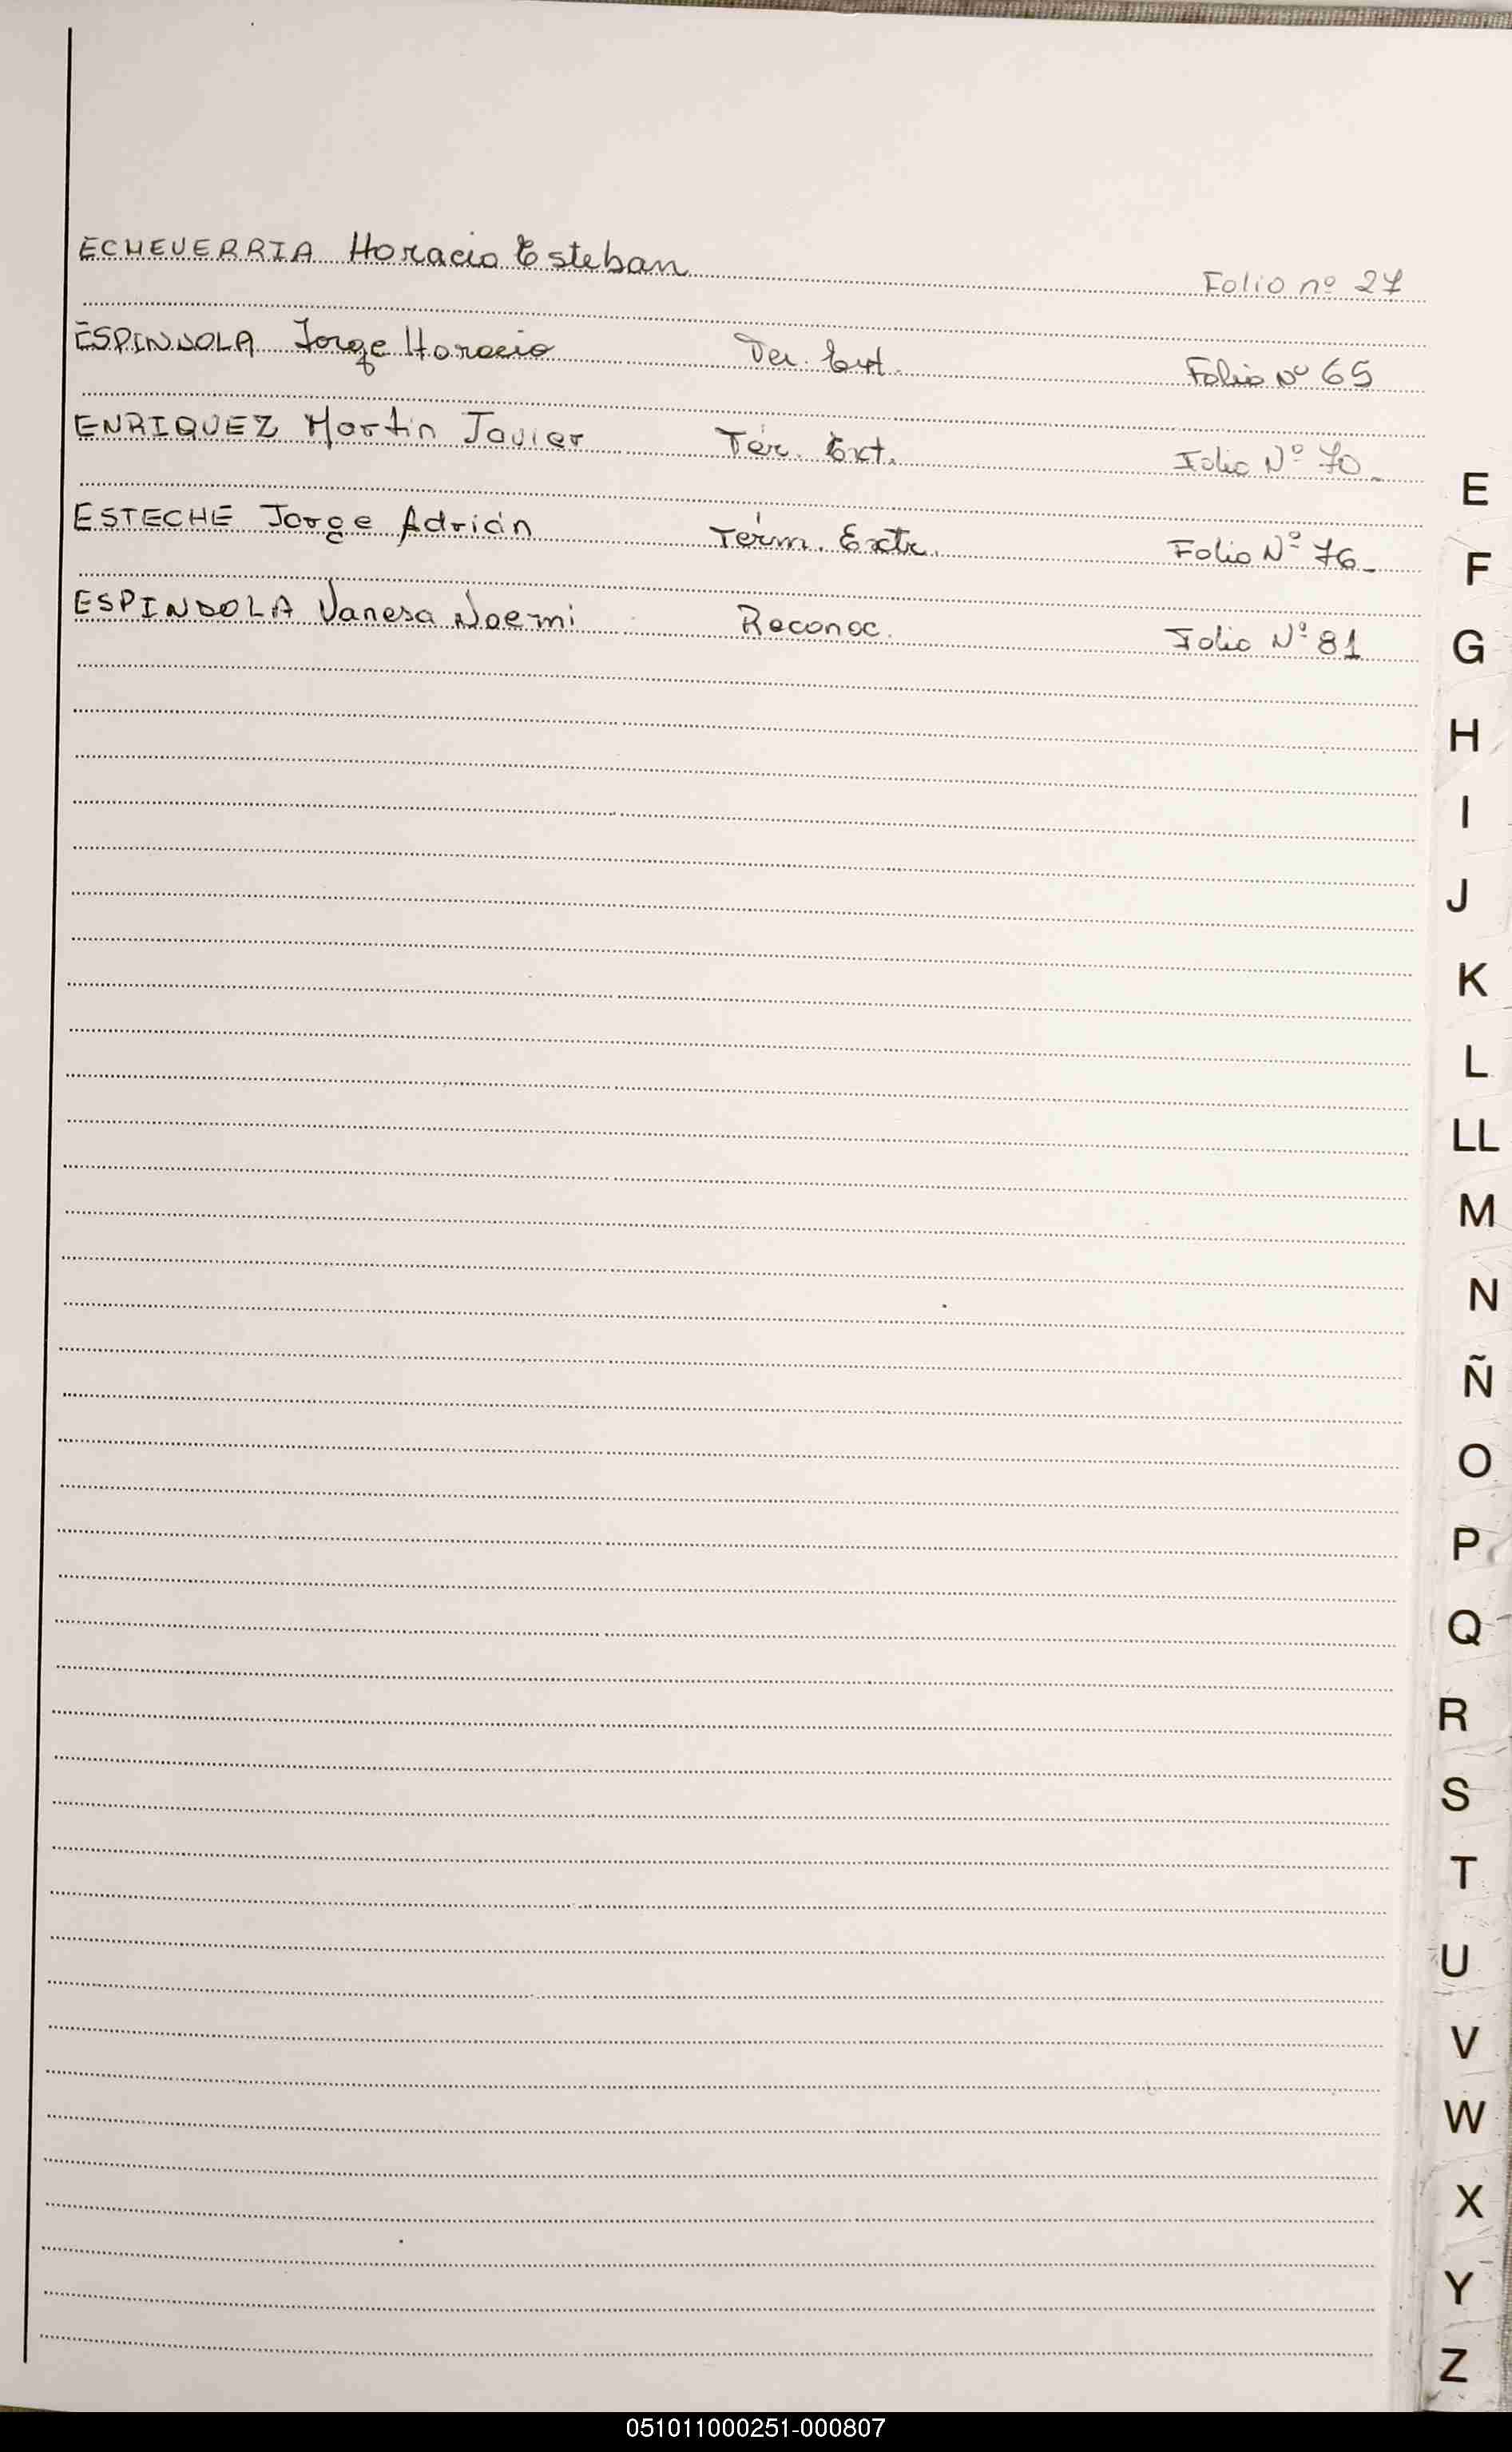 ECHEVERRIA Horacio Esteban Folio nº 27
ESPINDOLA Jorge Horacio Ter. Ext. Folio Nº 65
ENRIQUEZ Martin Javier Tér. Ext. Folio Nº 70_
ESTECHE Jorge Adrián Térm. Extr. Folio Nº 76_
ESPINDOLA Vanesa Noemi Reconoc. Folio Nº 81
E
F
G
H
I
J
K
L
LL
M
N
Ñ
O
P
Q
R
S
T
U
V
W
X
Y
Z
051011000251-000807